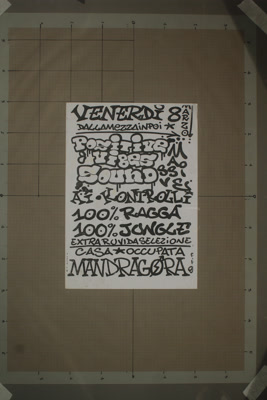 VENERDÌ 8 MARZO
DALLAMEZZAINPOI
POSITIVE
VIBES
SOUND
MASSIVE
AI KONTROLLI
100% RAGGA
100% JUNGLE
EXTRARUVIDASELEZIONE
CASA OCCUPATA
MANDRAGORA